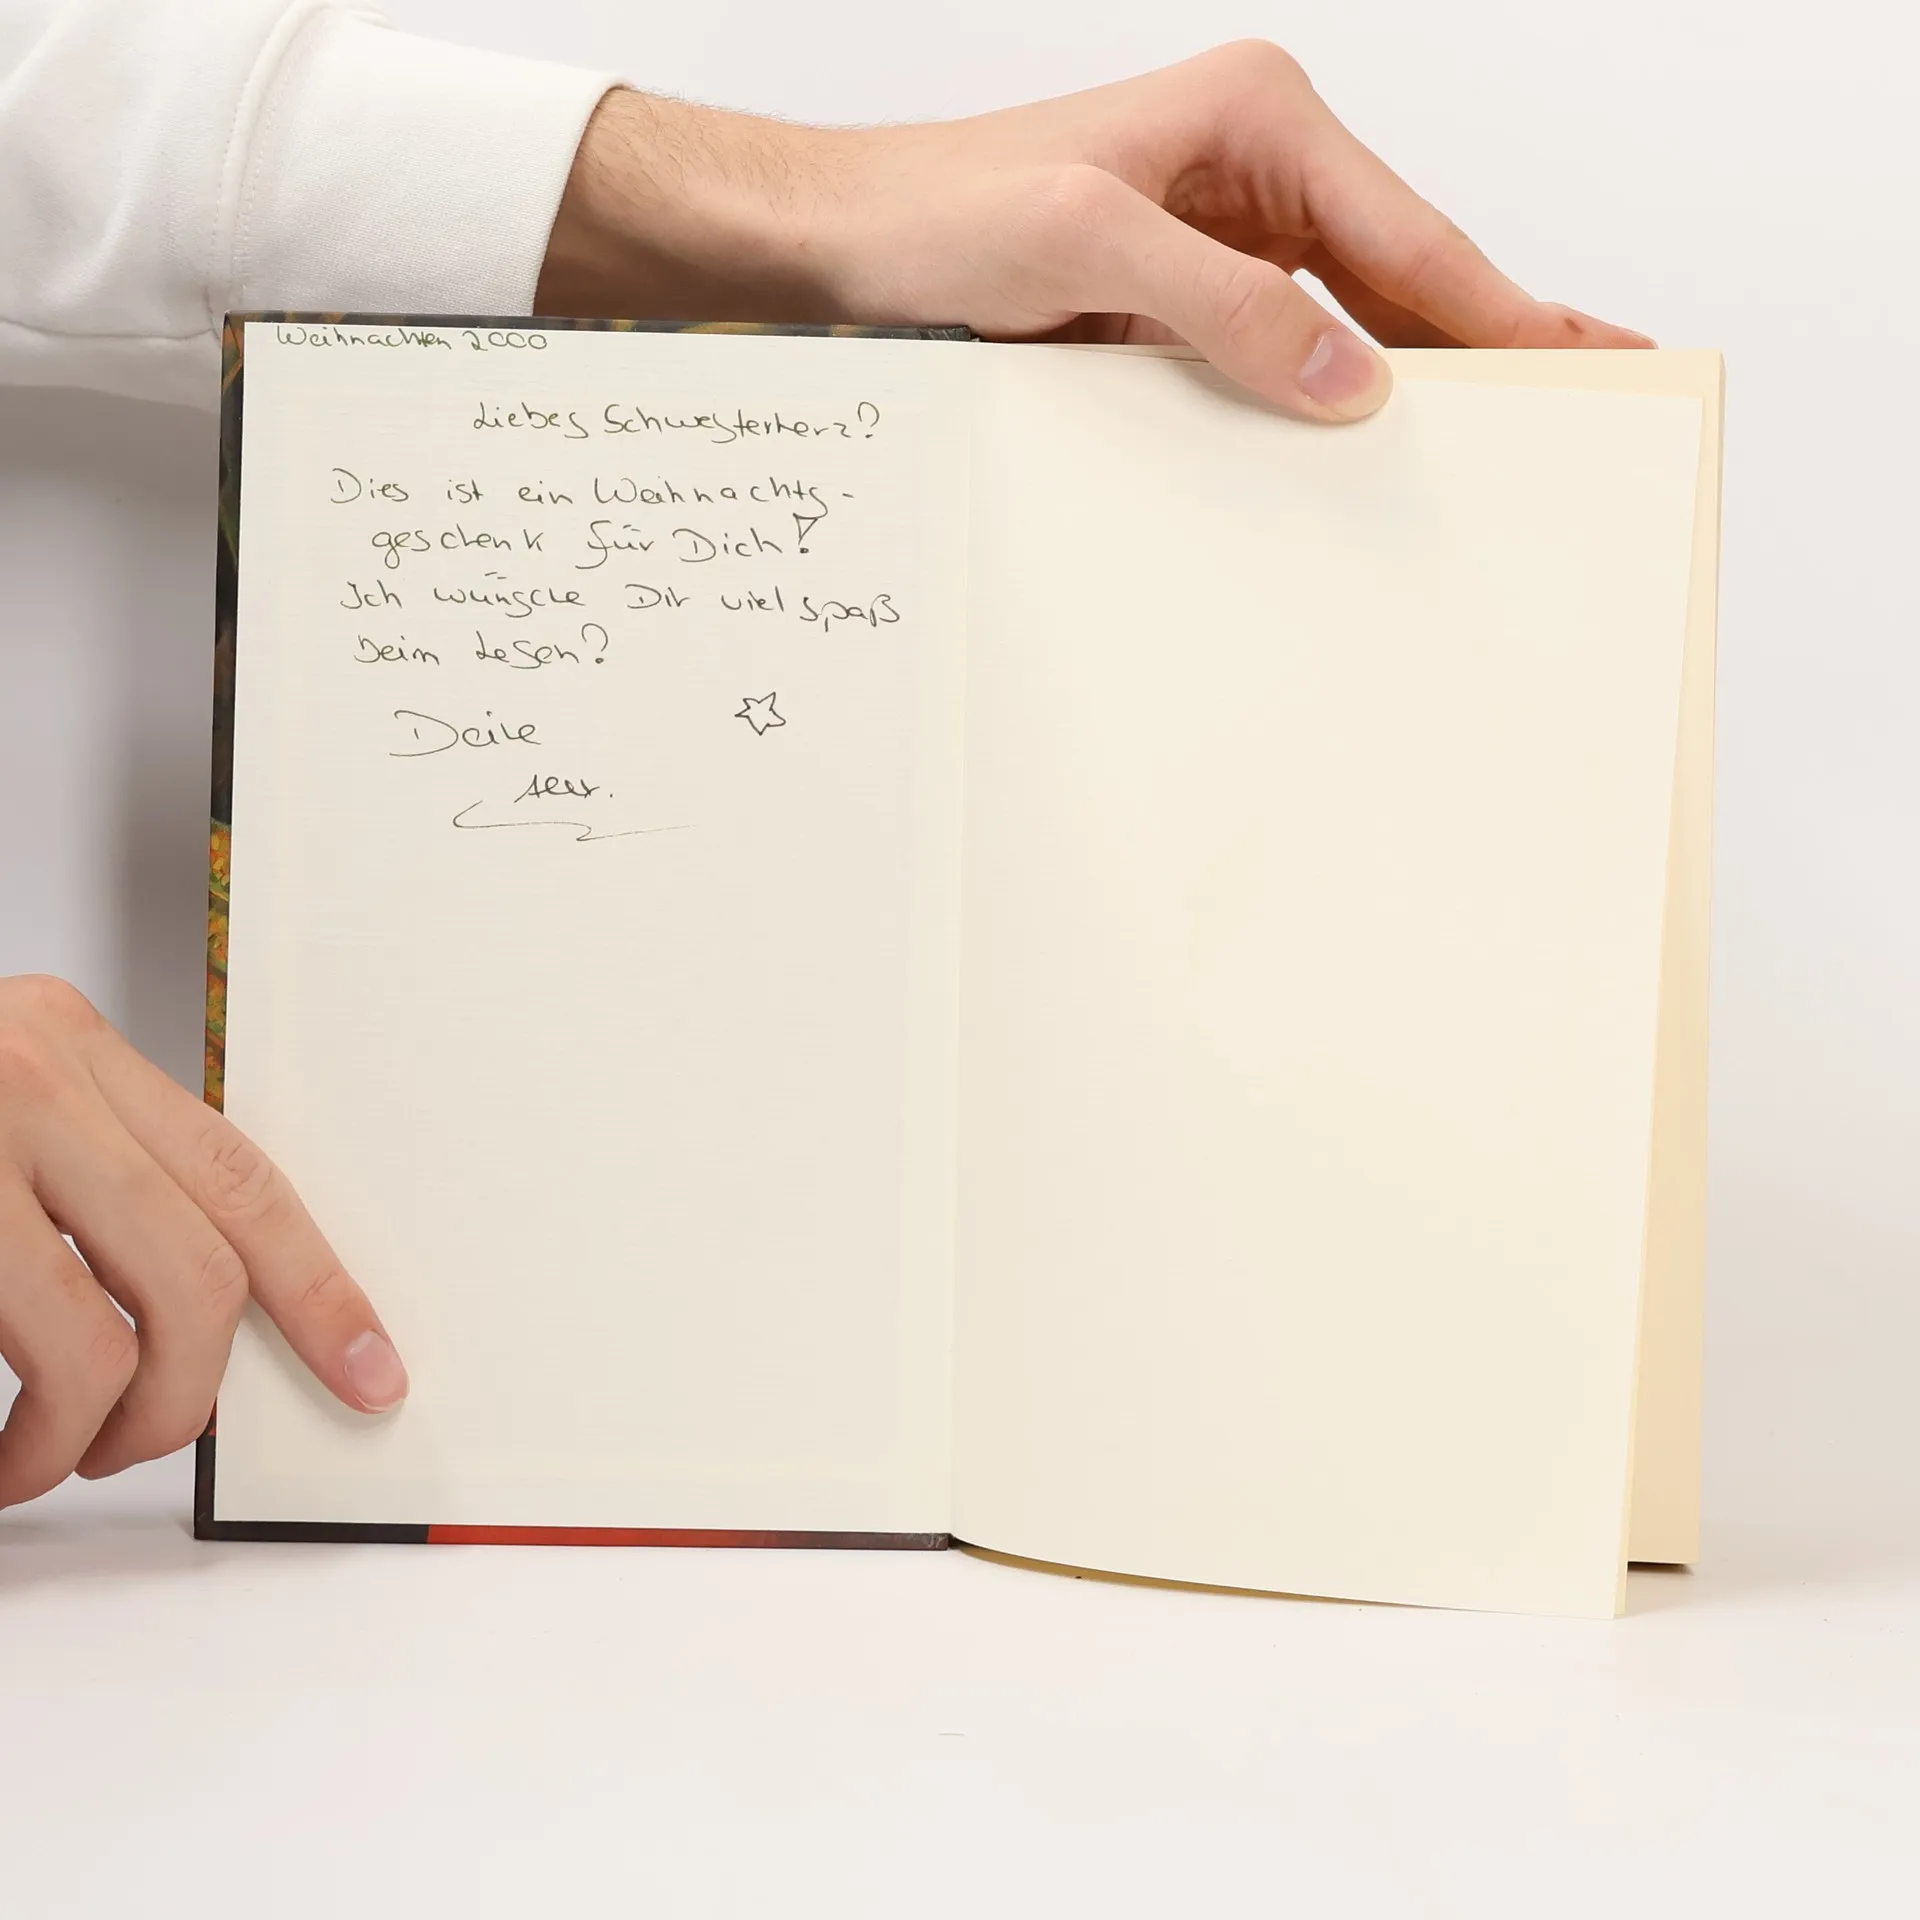 Weihnachten 2000
Liebes Schwesterherz!
Dies ist ein Weihnachts-
geschenk für Dich!
Ich wünsche Dir viel Spaß
beim Lesen!
Deine